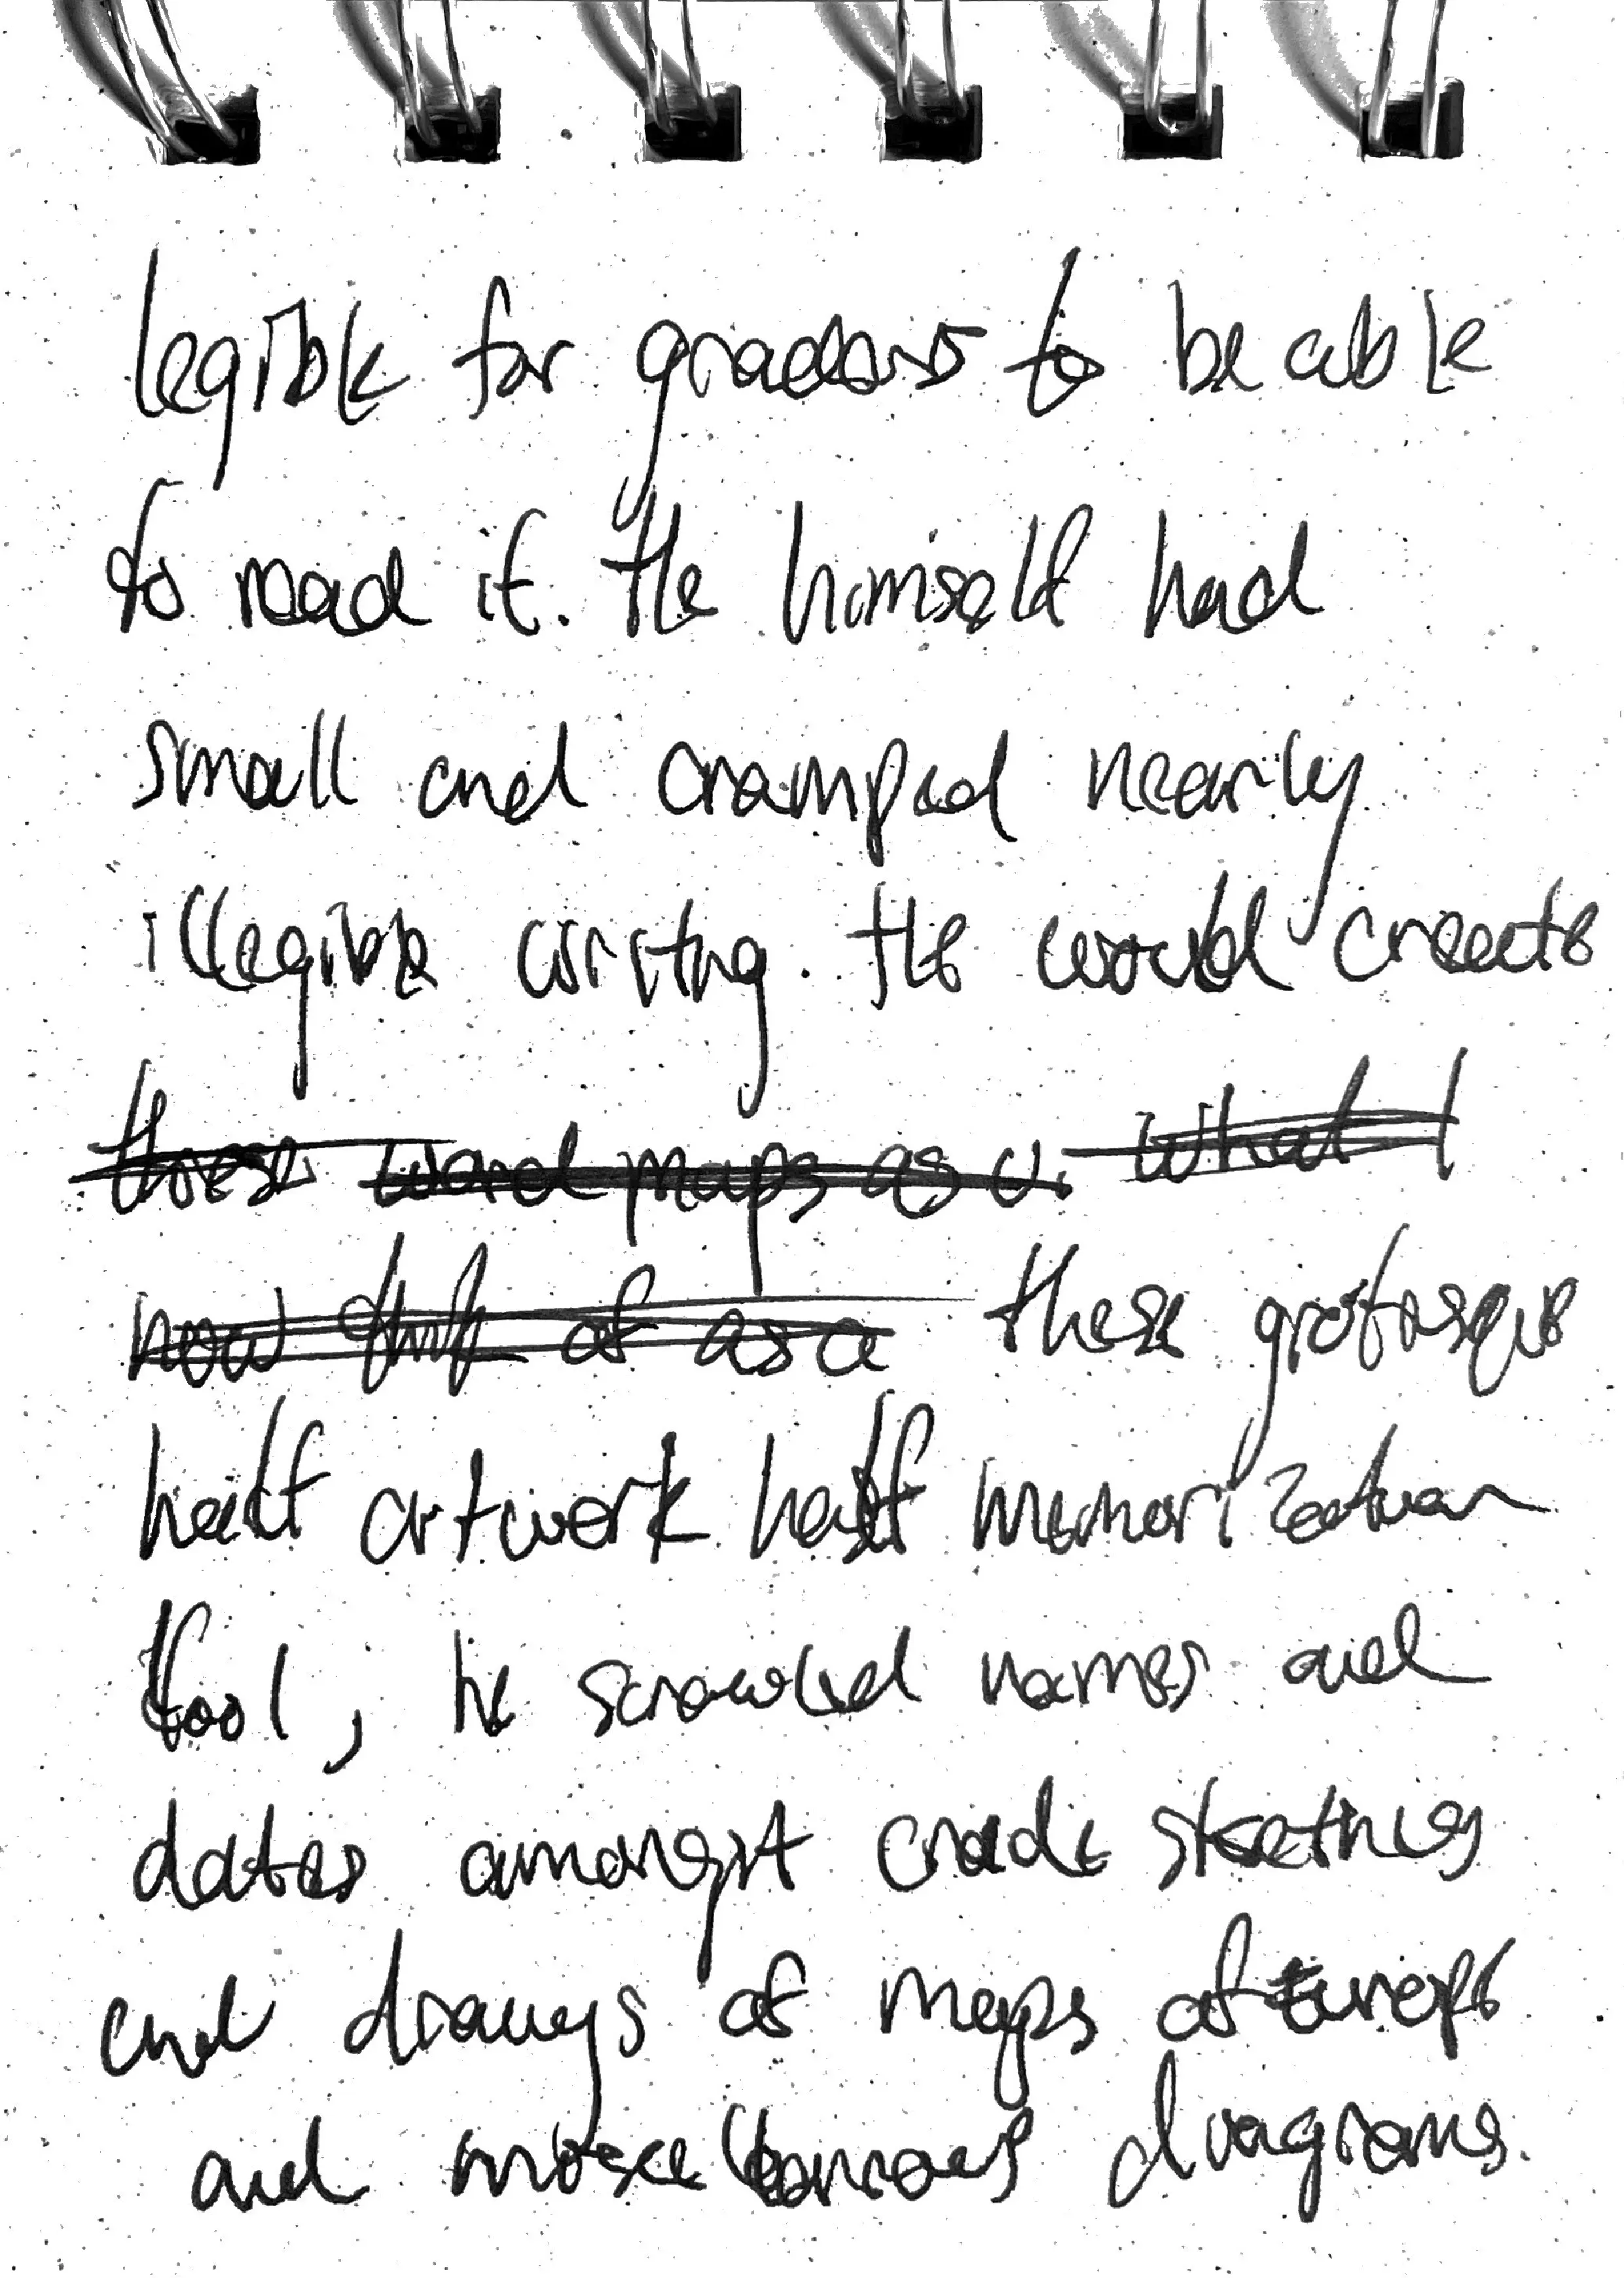 legible for graders to be able
to read it. He himself had
small and cramped nearly
illegible writing. He would create
these word maps as a. what I
now think of as a these grotesque
half artwork half memorization
tool, he scrawled names and
dates amongst crude sketches
and drawings of maps of Europe
and miscellaneous diagrams.